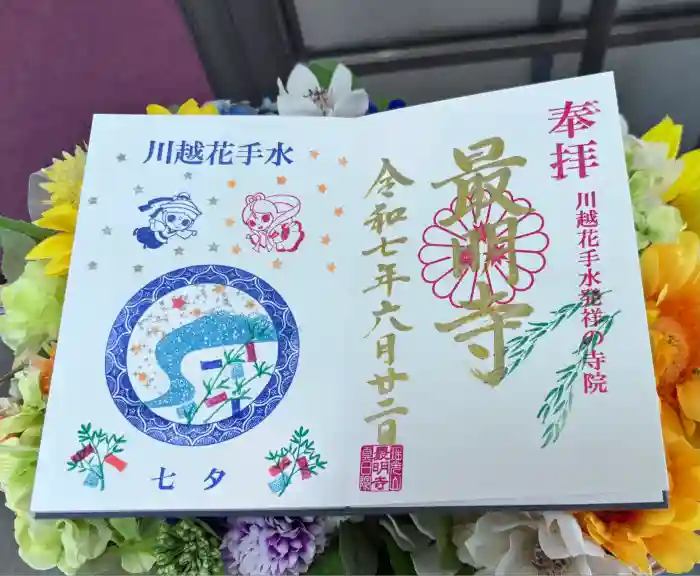 奉拝
川越花手水発祥の寺院
最明寺
令和七年六月廿二日
最明寺
川越花手水
七夕